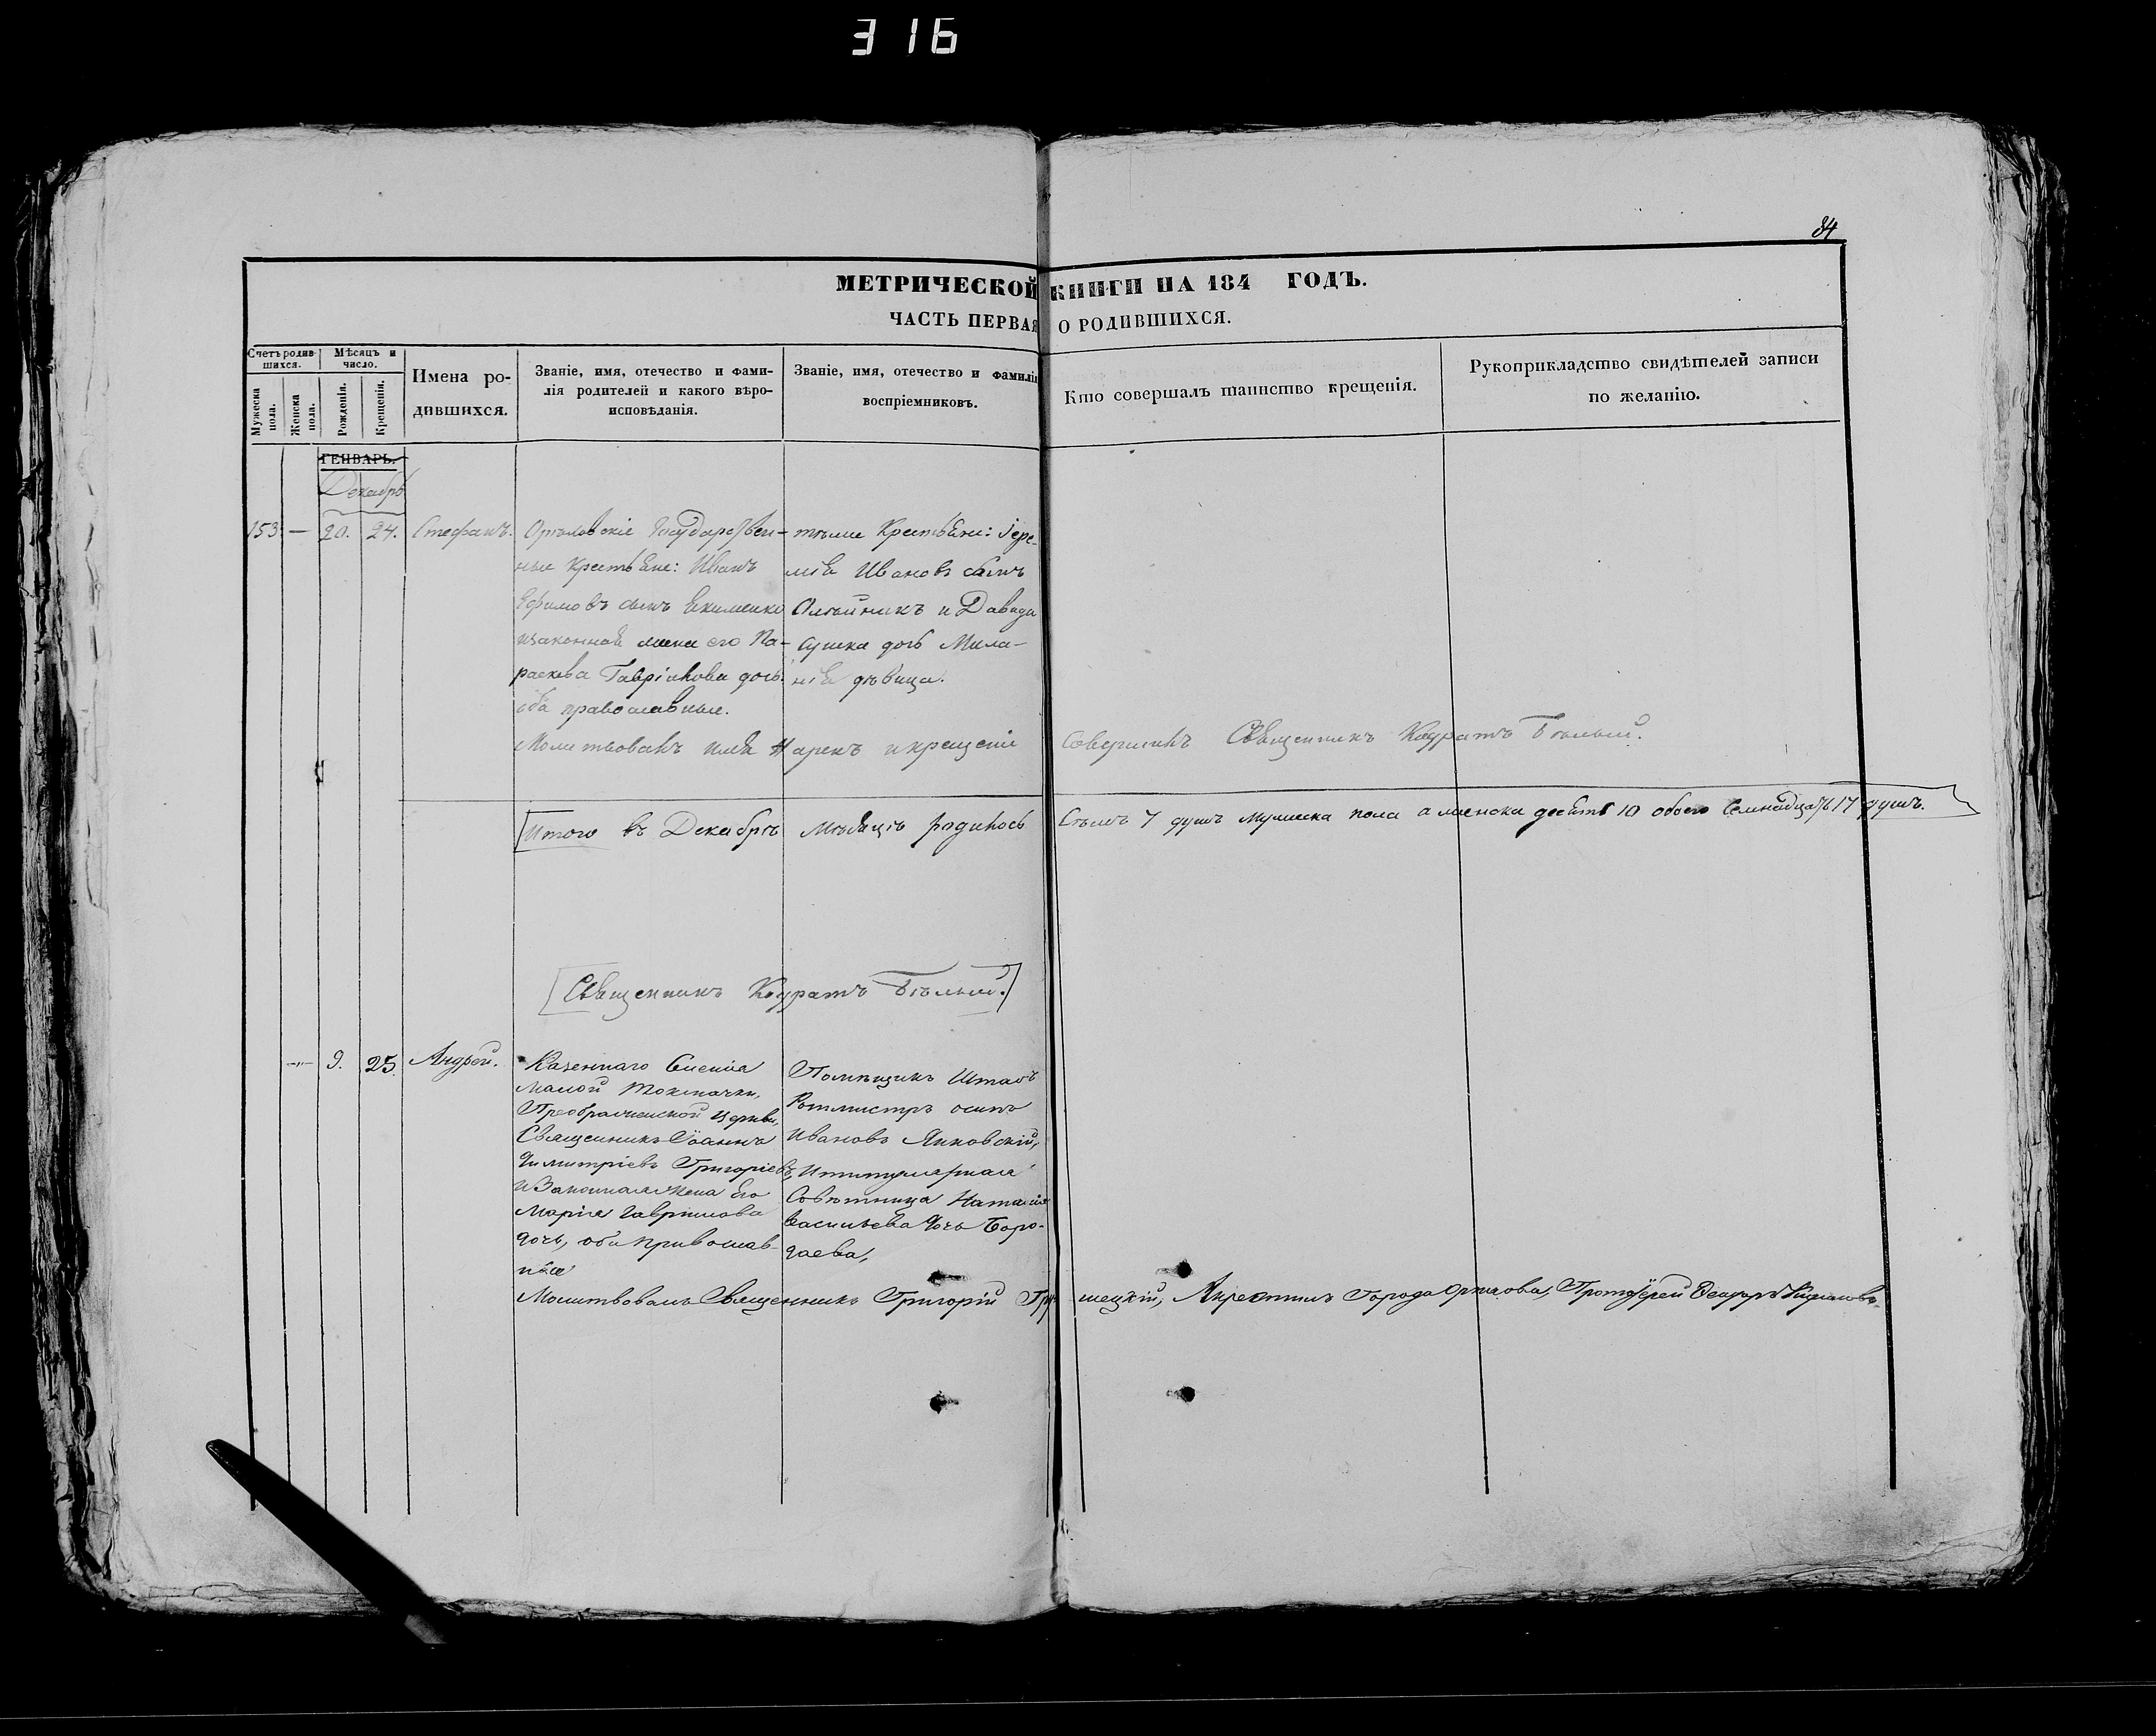 316
84
МЕТРИЧЕСКОЙ КНИГИ НА 184 ГОДЪ.
ЧАСТЬ ПЕРВАЯ О РОДИВШИХСЯ.
Счетъ родив-
шихся.
Мѣсяцъ и
число.
Мужеска
пола.
Женска
пола.
Рожденія.
Крещенія.
Имена ро-
дившихся.
Званіе, имя, отечество и фами-
лія родителей и какого вѣро-
исповѣданія.
Званіе, имя, отечество и фамилія
воспріемниковъ.
Кто совершалъ таинство крещенія.
Рукоприкладство свидѣтелей записи
по желанію.
ГЕНВАРЬ.
Декабрь
153 — 20. 24. Стефанъ.
Государствен-
ные крестьяне: Иванъ
Ефимовъ сынъ Екименко
и законная жена его Па-
раскева Гавріилова дочь.
оба православные.
тѣже Крестьяне: Іере-
мія Ивановъ сынъ
Олѣйникъ и Давида
дочь Мила-
нія дѣвица.
Молитвовалъ имя нарекъ и крещеніе совершилъ Священникъ Кодратъ Бѣлый.
Итого въ Декабрѣ Мѣсяцѣ родилось Семь 7 душъ мужеска пола а женска десять 10 обоего Семнадцать 17 душъ.
Священникъ Кодратъ Бѣлый.
— 9. 25. Андрей.
Казеннаго Сѣленія
Малой Токмачки,
Преображенской Церкви,
Священникъ Іоаннъ
Димитріевъ Григоріевъ,
и Законная жена Его
Марія Гаврилова
дочь, оба православ-
ные
Помѣщикъ Штабъ
Ротмистръ осипъ
Ивановъ Янковскій,
и титулярная
Совѣтница Наталія
васильева дочь Боро-
даева,
Молитвовалъ Священникъ Григорій
Города Орѣхова, Протоіерей